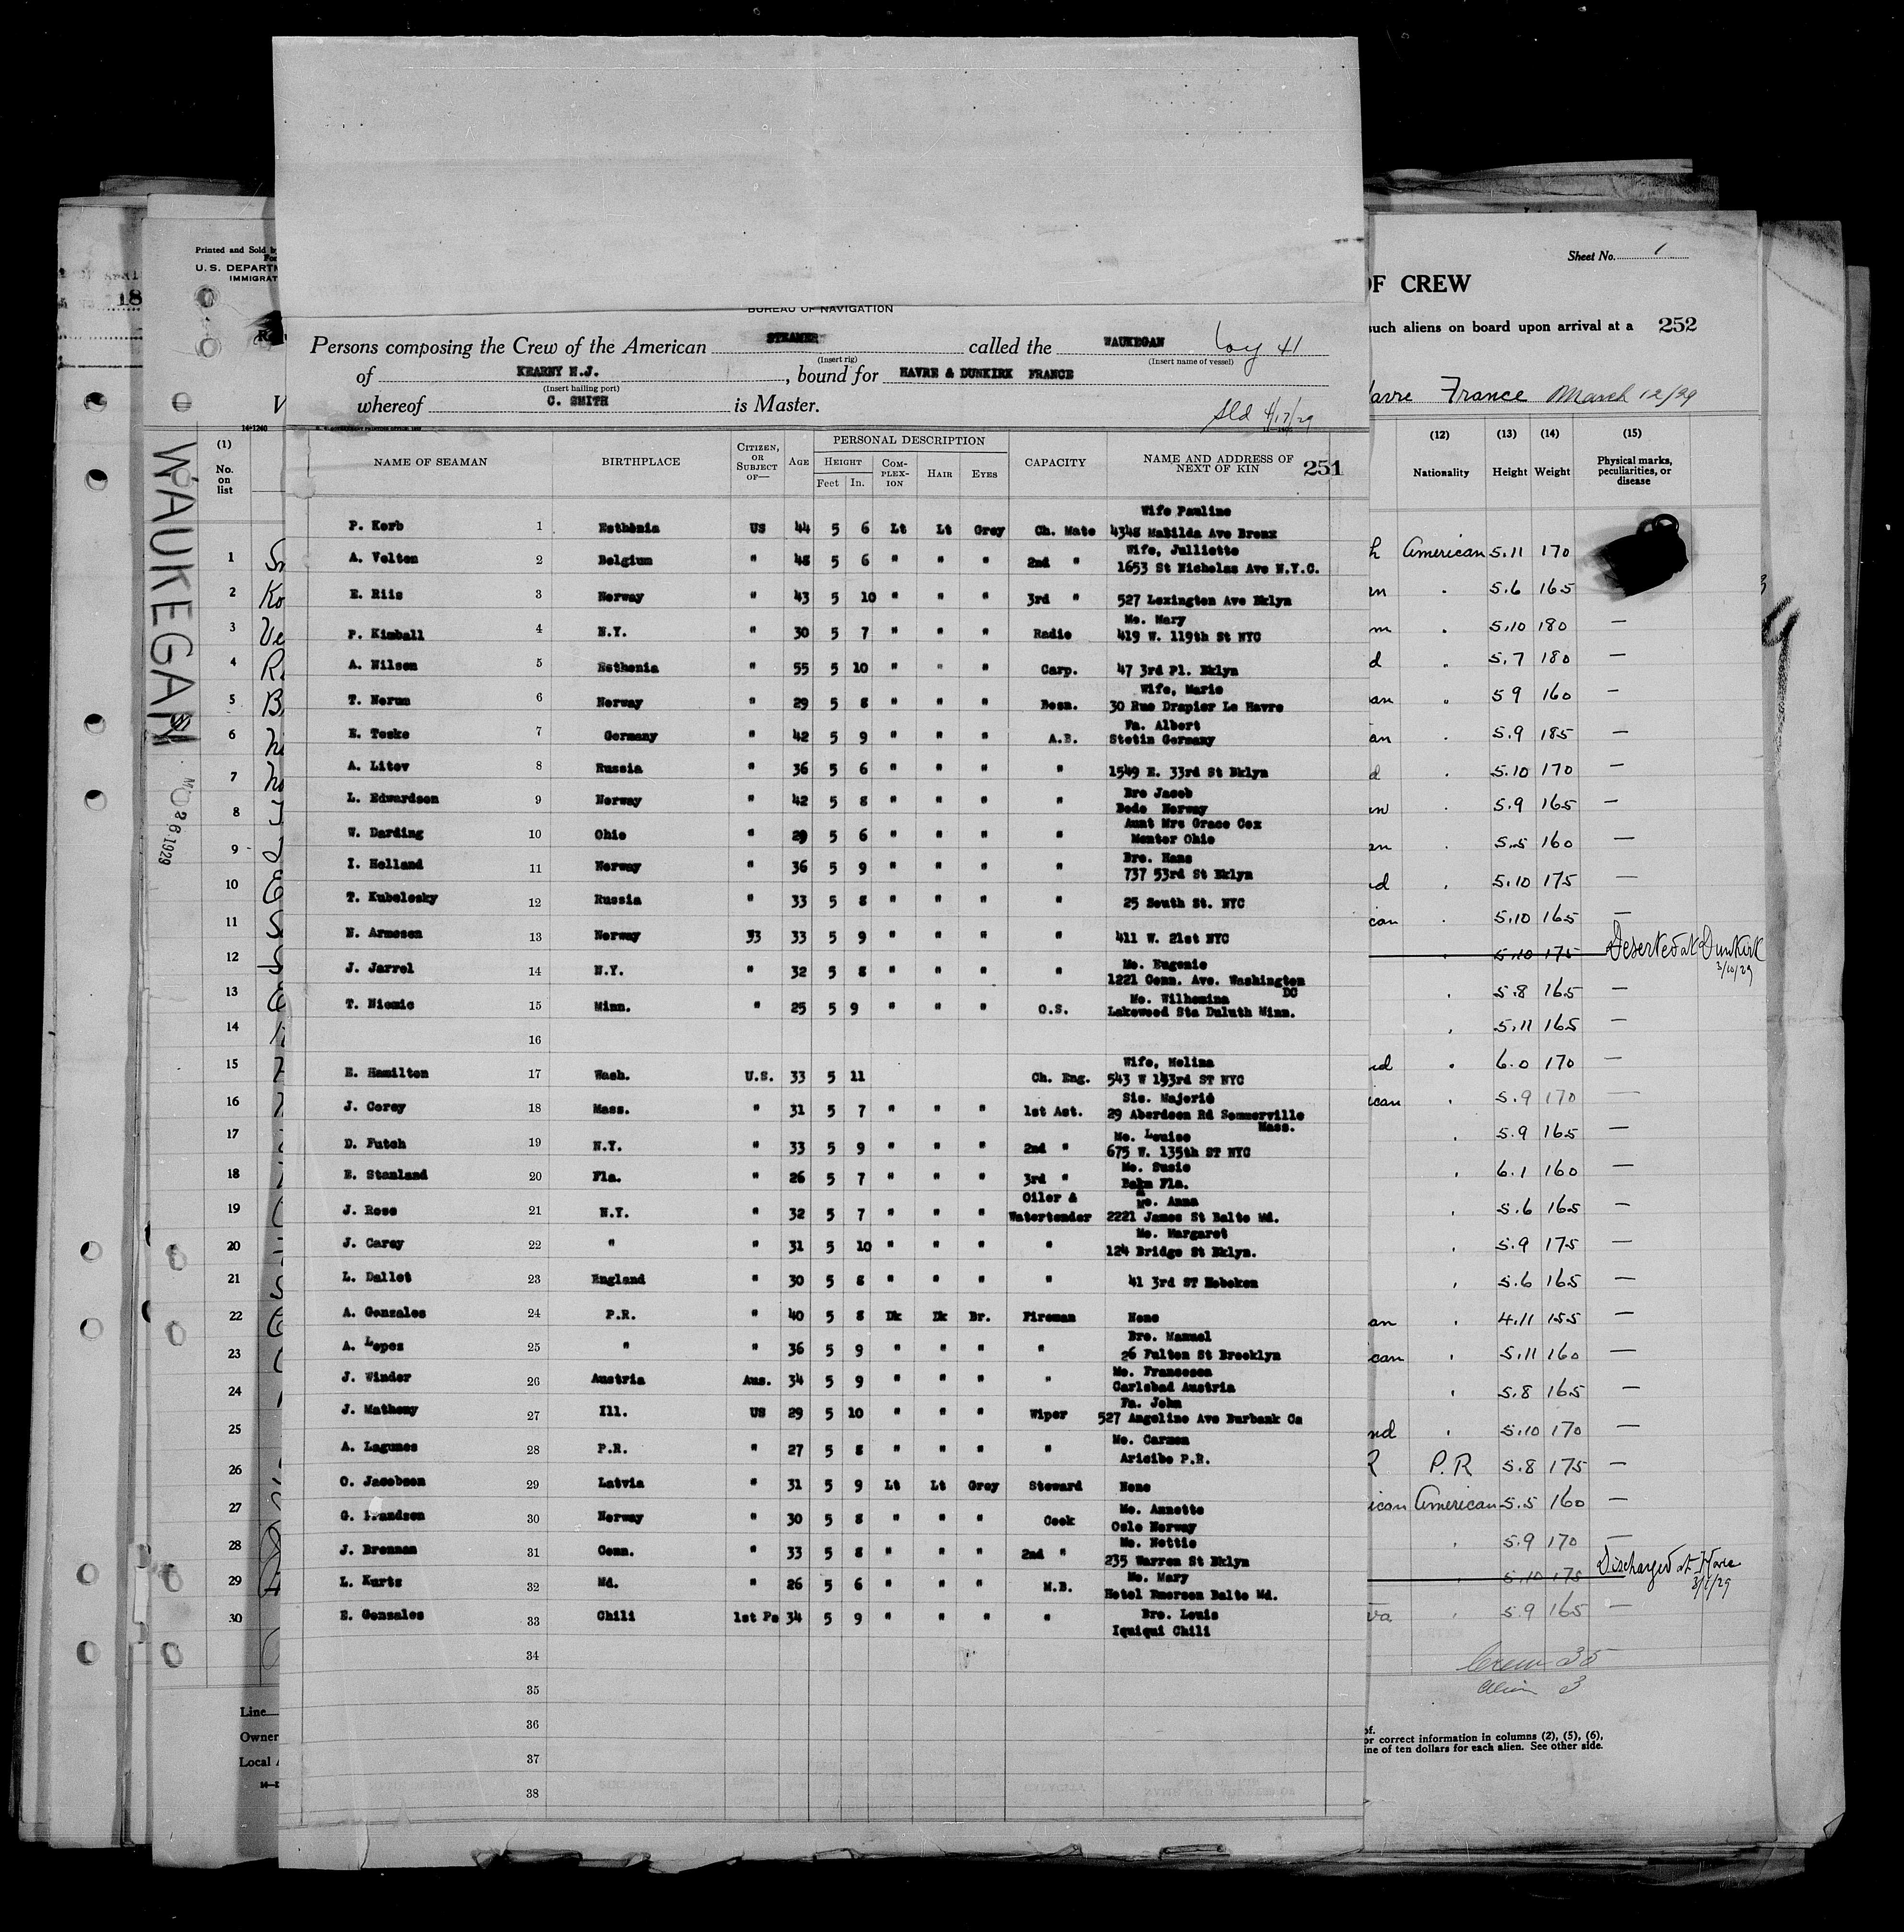 Printed and Sold b
U. S. DEPARTM
IMMIGRAT
18
WAUKEGAN
1929
14-1240
(1)
No.
on
list
1
2
3
4
5
6
7
8
9
10
11
12
13
14
15
16
17
18
19
20
21
22
23
24
25
26
27
28
29
30
Line
Owner
Local A
BUREAU OF NAVIGATION
Persons composing the Crew of the American STEAMER called the WAUKEGAN Voy 41
(Insert rig) (Insert name of vessel)
of KEARNY N.J., bound for HAVRE & DUNKIRK FRANCE
(Insert hailing port)
whereof C. SMITH is Master. Sld 4/17/29
NAME OF SEAMAN BIRTHPLACE CITIZEN, OR SUBJECT OF— AGE PERSONAL DESCRIPTION CAPACITY NAME AND ADDRESS OF NEXT OF KIN 251
HEIGHT COM-PLEX-ION HAIR EYES
Feet In.
Wife Pauline
P. Kerb 1 Esthenia US 44 5 6 Lt Lt Grey Ch. Mate 4348 Matilda Ave Bronx
Wife, Julliette
A. Velten 2 Belgium " 48 5 6 " " " 2nd " 1653 St Nicholas Ave N.Y.C.
E. Riis 3 Norway " 43 5 10 " " " 3rd " 527 Lexington Ave Bklyn
Mo. Mary
P. Kimball 4 N.Y. " 30 5 7 " " " Radio 419 W. 119th St NYC
A. Nilsen 5 Esthenia " 55 5 10 " " " Carp. 47 3rd Pl. Bklyn
Wife, Marie
T. Nerum 6 Norway " 29 5 8 " " " Bosn. 30 Rue Drapier Le Havre
Fa. Albert
E. Teske 7 Germany " 42 5 9 " " " A.B. Stetin Germany
A. Litov 8 Russia " 36 5 6 " " " " 1549 E. 33rd St Bklyn
Bro Jacob
L. Edwardsen 9 Norway " 42 5 8 " " " " Bodo Norway
Aunt Mrs Grace Cox
W. Darding 10 Ohio " 29 5 6 " " " " Mentor Ohio
Bro. Hans
I. Helland 11 Norway " 36 5 9 " " " " 737 53rd St Bklyn
T. Kubelesky 12 Russia " 33 5 8 " " " " 25 South St. NYC
N. Arnesen 13 Norway 33 33 5 9 " " " " 411 W. 21st NYC
Mo. Eugenie
J. Jarrel 14 N.Y. " 32 5 8 " " " " 1221 Conn. Ave. Washington DC
Mo. Wilhemina
T. Niemic 15 Minn. " 25 5 9 " " " O.S. Lakewood Sta Duluth Minn.
16
Wife, Melina
E. Hamilton 17 Wash. U.S. 33 5 11 Ch. Eng. 543 W 183rd ST NYC
Sis. Majorie
J. Corey 18 Mass. " 31 5 7 " " " 1st Ast. 29 Aberdeen Rd Sommerville Mass.
Mo. Louise
D. Futch 19 N.Y. " 33 5 9 " " " 2nd " 675 W. 135th ST NYC
Mo. Susie
E. Stanland 20 Fla. " 26 5 7 " " " 3rd " Bakn Fla.
Oiler & Mo. Anna
J. Rose 21 N.Y. " 32 5 7 " " " Watertender 2221 James St Balto Md.
Mo. Margaret
J. Carey 22 " " 31 5 10 " " " " 124 Bridge St Bklyn.
L. Dallet 23 England " 30 5 8 " " " " 41 3rd ST Hoboken
A. Gonzales 24 P.R. " 40 5 8 Dk Dk Br. Fireman None
Bro. Manuel
A. Lopez 25 " " 36 5 9 " " " " 26 Fulton St Brooklyn
Mo. Francesca
J. Winder 26 Austria Aus. 34 5 9 " " " " Carlsbad Austria
Fa. John
J. Matheny 27 Ill. US 29 5 10 " " " Wiper 527 Angeline Ave Burbank Ca
Mo. Carmen
A. Lagunes 28 P.R. " 27 5 8 " " " " Aricibo P.R.
O. Jacobsen 29 Latvia " 31 5 9 Lt Lt Grey Steward None
Mo. Annette
G. 30 Norway " 30 5 8 " " " Cook Oslo Norway
Mo. Nettie
J. Brennan 31 Conn. " 33 5 8 " " " 2nd " 235 Warren St Bklyn
Mo. Mary
L. Kurtz 32 Md. " 26 5 6 " " " M.B. Hotel Emerson Balto Md.
Bro. Louis
E. Gonzales 33 Chili 1st Pa 34 5 9 " " " " Iquiqui Chili
34
35
36
37
38
Sheet No. 1
OF CREW
such aliens on board upon arrival at a 252
Havre France March 12/29
(12) (13) (14) (15)
Nationality Height Weight Physical marks, peculiarities, or disease
American 5.11 170
" 5.6 165
" 5.10 180 —
" 5.7 180 —
" 5 9 160 —
" 5.9 185 —
" 5.10 170 —
" 5.9 165 —
" 5.5 160 —
" 5.10 175 —
" 5.10 165 —
" 5.10 175 Deserted at Dunkirk 3/10/29
" 5.8 165 —
" 5.11 165 —
" 6.0 170 —
" 5.9 170 —
" 5.9 165 —
" 6.1 160 —
" 5.6 165 —
" 5.9 175 —
" 5.6 165 —
" 4.11 155 —
" 5.11 160 —
" 5.8 165 —
" 5.10 170 —
P.R 5.8 175 —
American 5.5 160 —
" 5.9 170 —
" 5.10 175 Discharged at Havre 3/1/29
" 5.9 165 —
Crew 35
Alien 3
or correct information in columns (2), (5), (6),
ine of ten dollars for each alien. See other side.